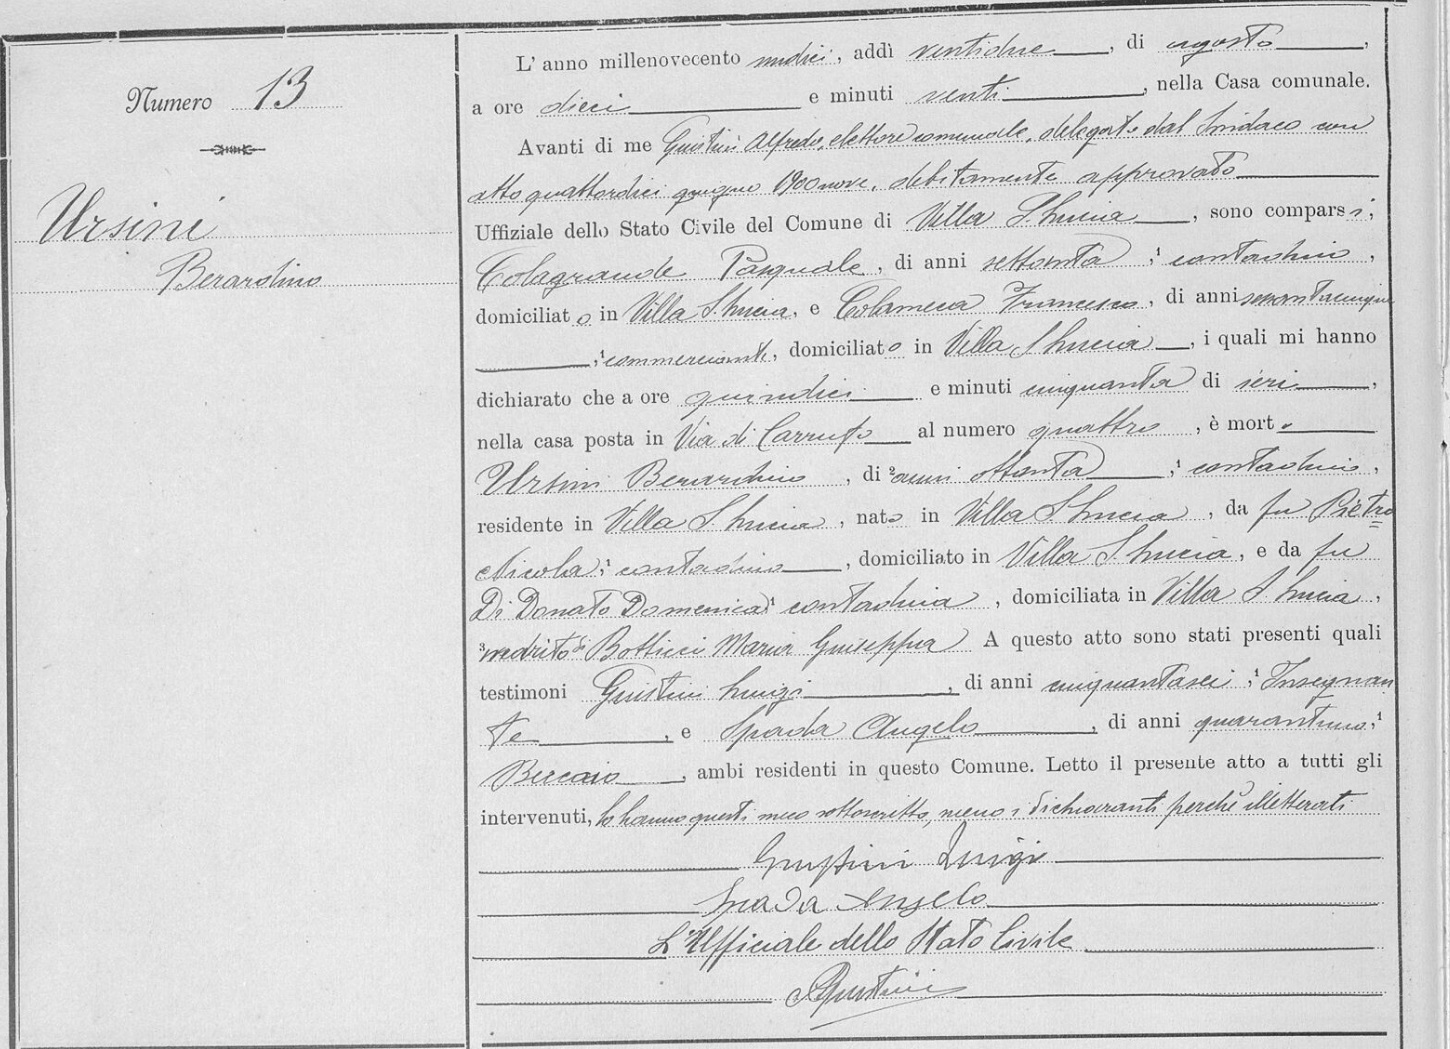 Numero 13
Ursini
Berardino
L' anno millenovecento undici, addì ventidue, di agosto,
a ore dieci e minuti venti, nella Casa comunale.
Avanti di me Giustini Alfredo, elettore comunale, delegato dal Sindaco con
atto quattordici giugno 1900nove, debitamente approvato
Uffiziale dello Stato Civile del Comune di Villa S. Lucia, sono comparsi,
Colagrande Pasquale, di anni settanta, ¹ contadino,
domiciliato in Villa S. Lucia, e Colameca Francesco, di anni sessantacinque
,¹ commerciante, domiciliato in Villa S. Lucia, i quali mi hanno
dichiarato che a ore quindici e minuti cinquanta di ieri,
nella casa posta in Via di Carrufo al numero quattro, è morto
Ursini Berardino, di ²anni ottanta,¹ contadino,
residente in Villa S. Lucia, nato in Villa S. Lucia, da fu Pietro=
Nicola,¹ contadino, domiciliato in Villa S. Lucia, e da fu
Di Donato Domenica,¹ contadina, domiciliata in Villa S. Lucia,
³marito di Botticci Maria Giuseppa A questo atto sono stati presenti quali
testimoni Giustini Luigi, di anni cinquantasei,¹ Insegnan
te, e Spada Angelo, di anni quarantuno,¹
Beccaio, ambi residenti in questo Comune. Letto il presente atto a tutti gli
intervenuti, lo hanno questi meco sottoscritto, meno i dichiaranti perchè illetterati
Giustini Luigi
Spada Angelo
L'Ufficiale dello Stato Civile
AGiustini